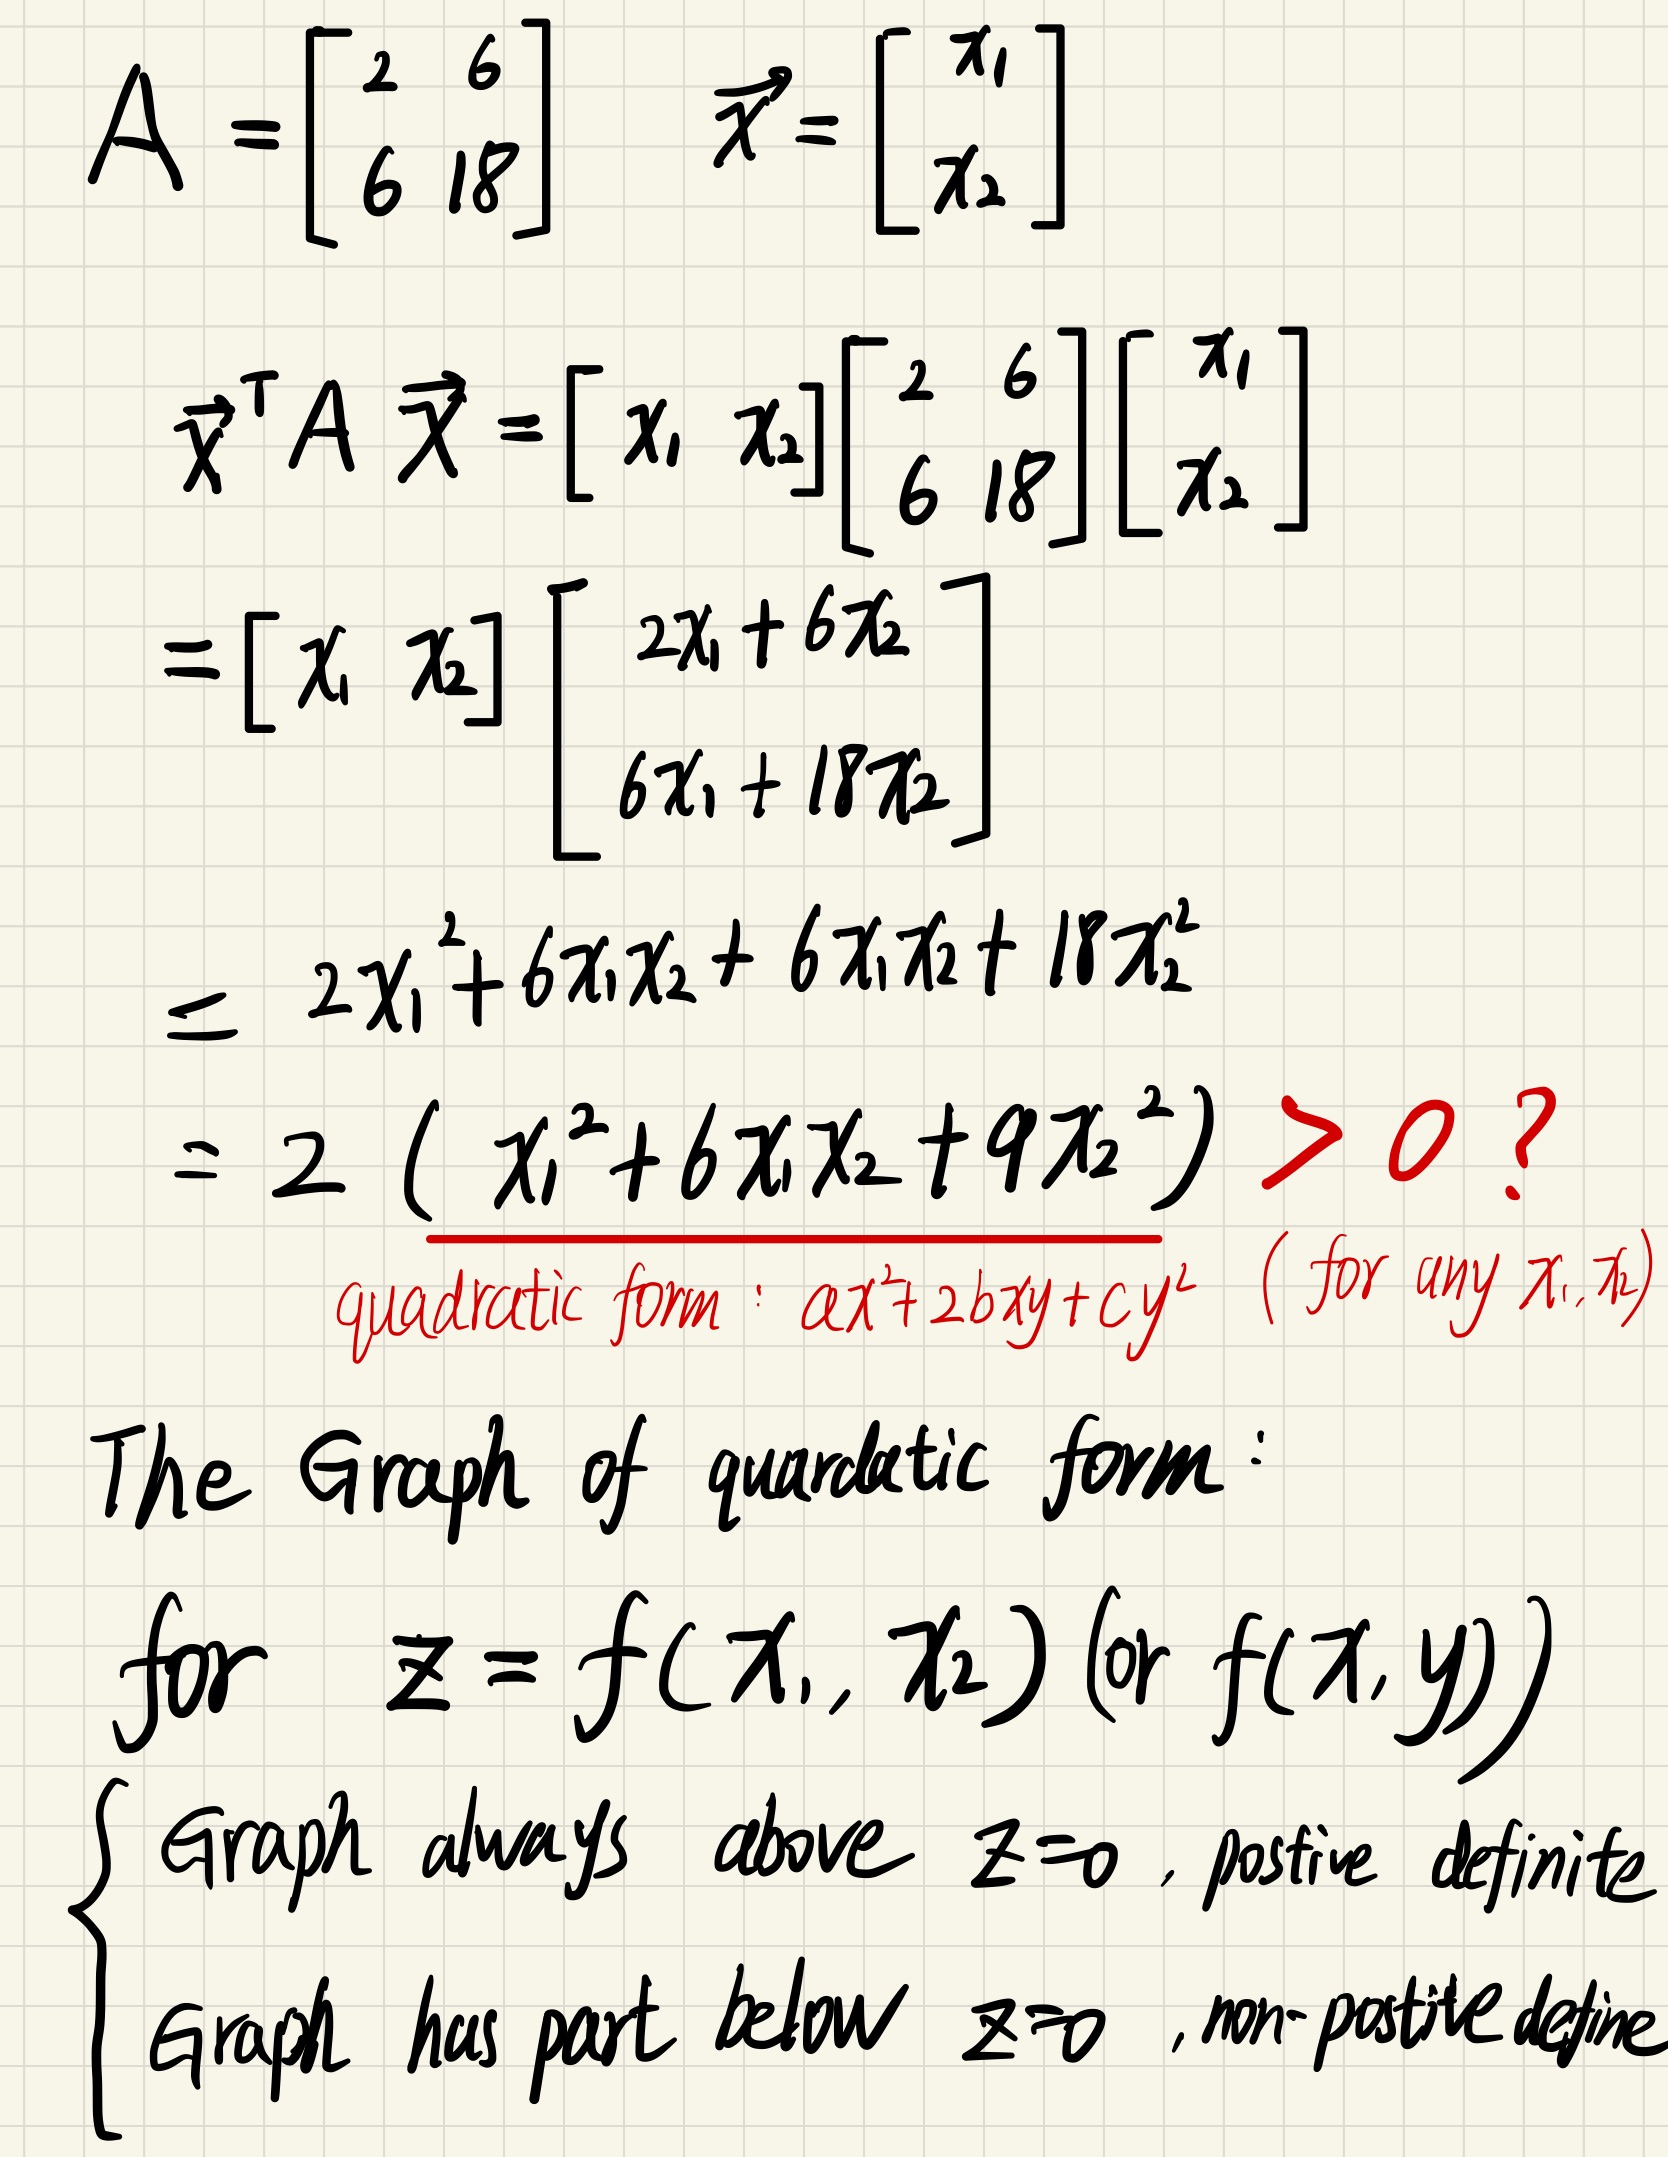 A = [2 6; 6 18]   x⃗ = [x₁; x₂]
x⃗ᵀ A x⃗ = [x₁ x₂] [2 6; 6 18] [x₁; x₂]
= [x₁ x₂] [2x₁ + 6x₂; 6x₁ + 18x₂]
= 2x₁² + 6x₁x₂ + 6x₁x₂ + 18x₂²
= 2 (x₁² + 6x₁x₂ + 9x₂²) > 0 ?
quadratic form : ax² + 2bxy + cy² (for any x₁, x₂)
The Graph of quardatic form :
for z = f(x₁, x₂) (or f(x, y))
Graph always above z=0 , postive definite
Graph has part below z=0 , non-postitve define